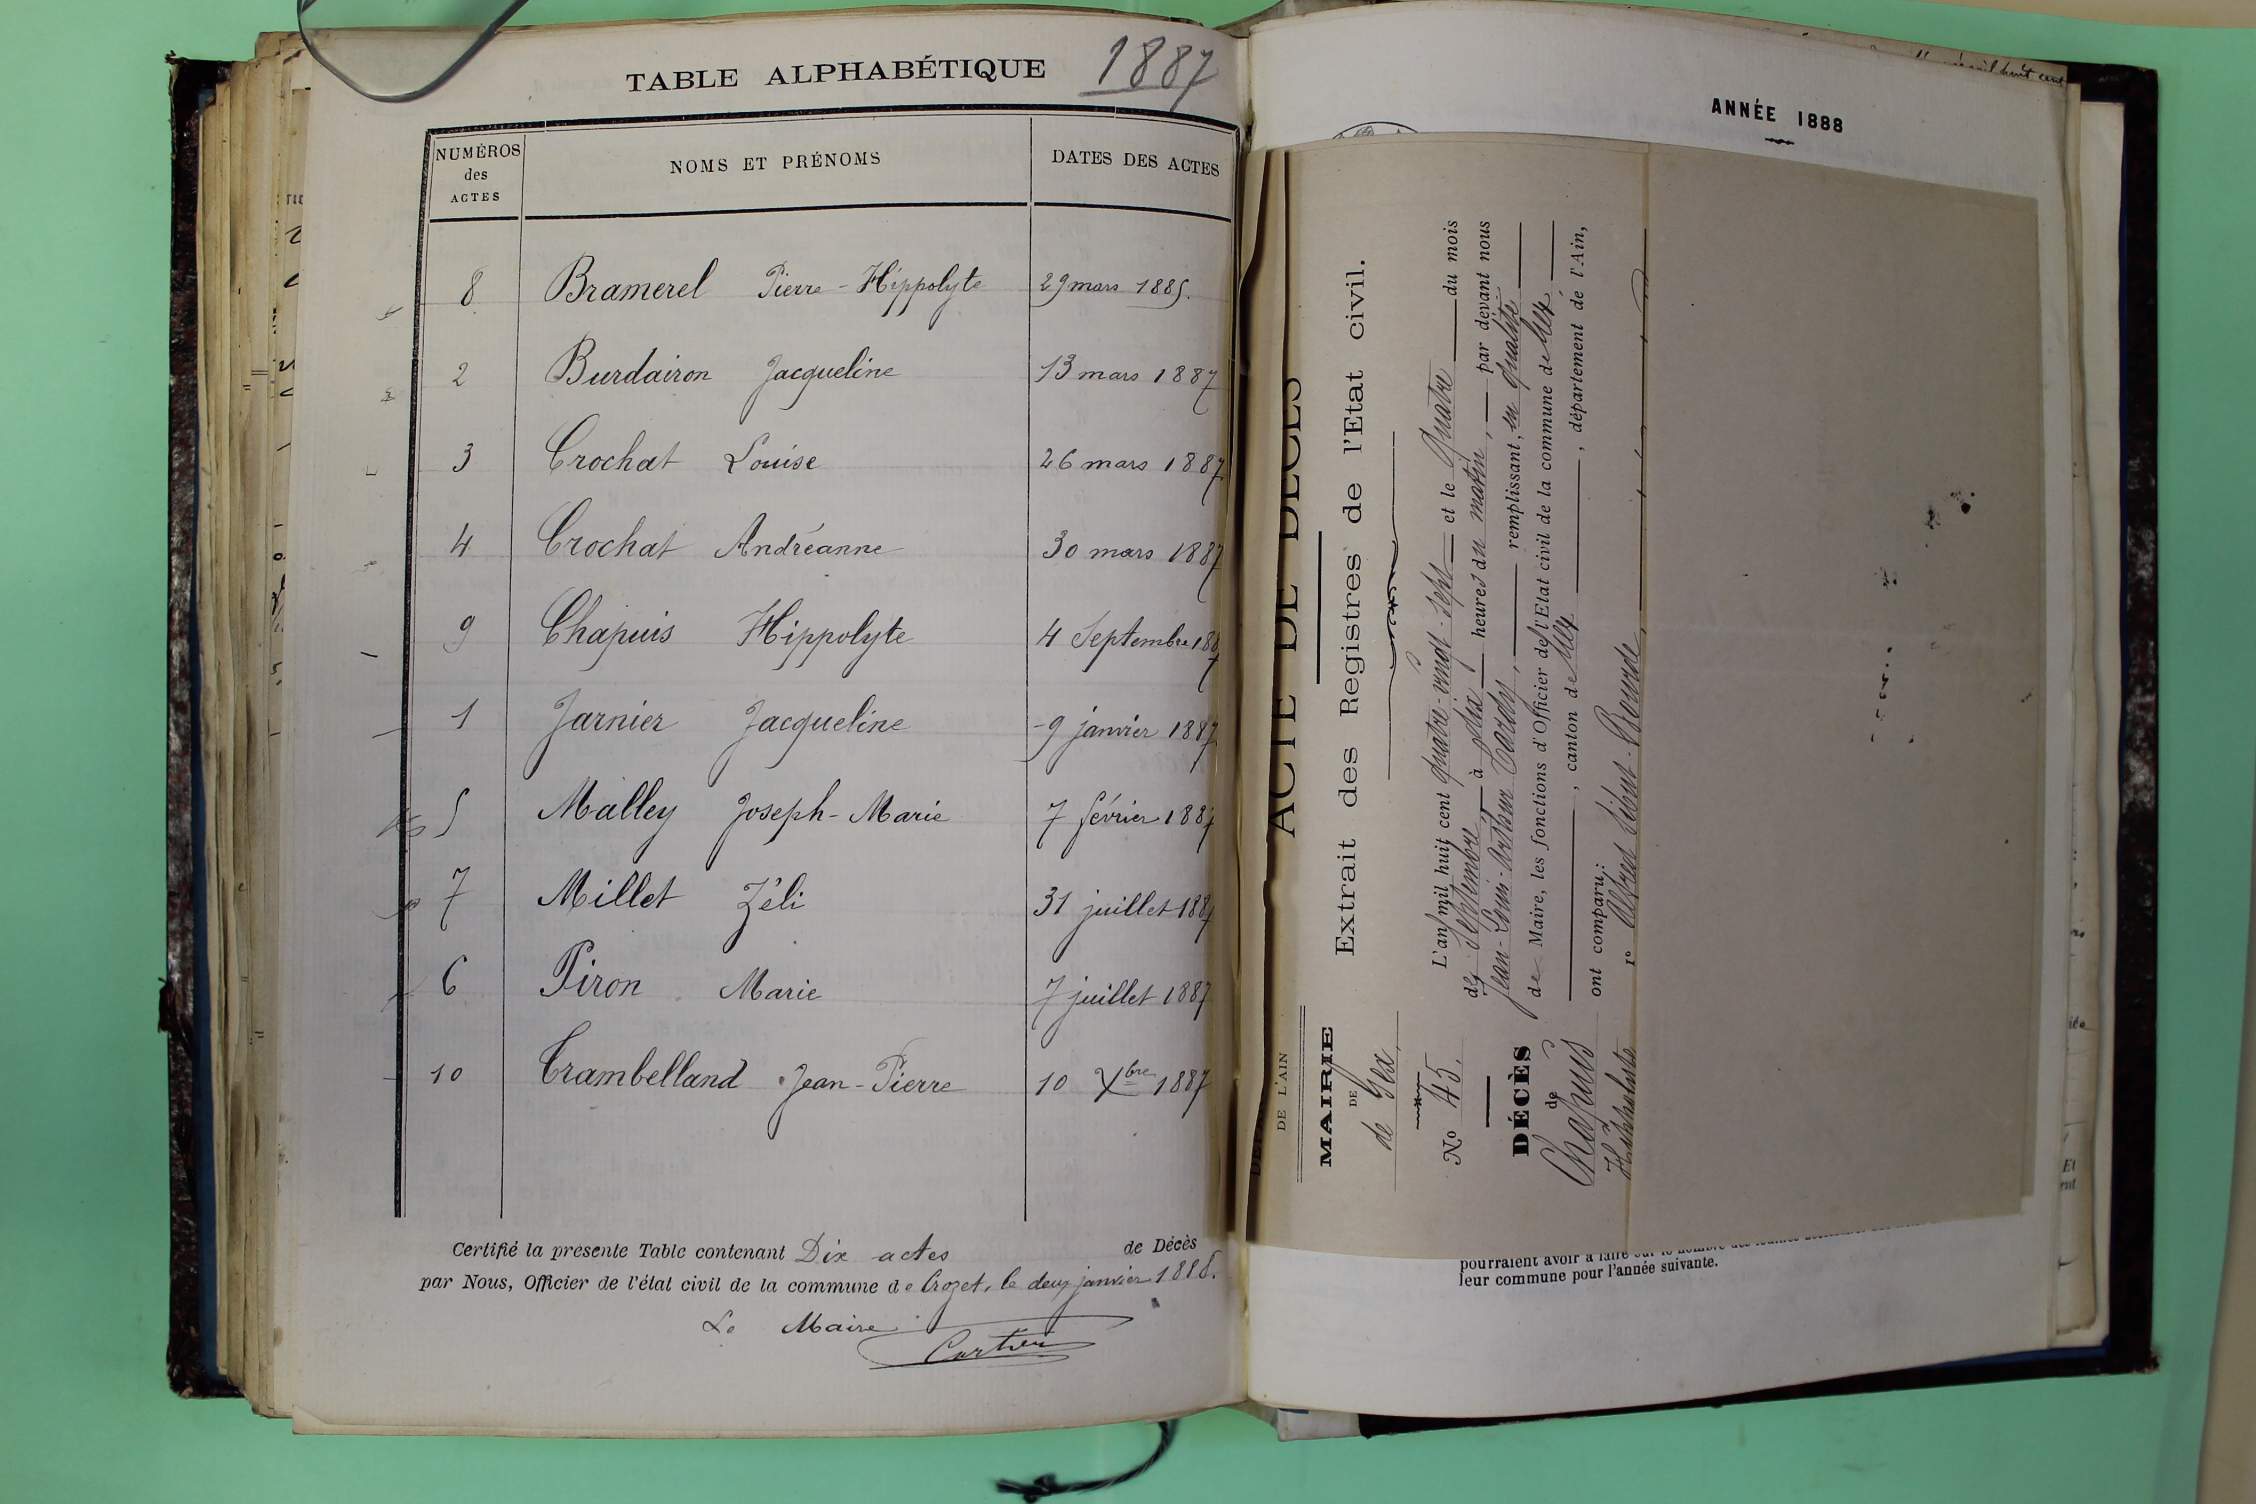 TABLE ALPHABÉTIQUE 1887
NUMÉROS des ACTES NOMS ET PRÉNOMS DATES DES ACTES
8 Bramerel Pierre-Hippolyte 29 mars 1885.
2 Burdairon Jacqueline 13 mars 1887
3 Crochat Louise 26 mars 1887
4 Crochat Andréanne 30 mars 1887
9 Chapuis Hippolyte 4 Septembre 1887
1 Jarnier Jacqueline 9 janvier 1887
5 Malley Joseph-Marie 7 février 1887
7 Millet Zéli 31 juillet 1887
6 Piron Marie 7 juillet 1887
10 Trambelland Jean-Pierre 10 Xbre 1887
Certifié la presente Table contenant Dix actes de Décès
par Nous, Officier de l'état civil de la commune de Crozet, le deux janvier 1888.
Le Maire
Cartier
ANNÉE 1888
DE L'AIN
MAIRIE
DE
de Gex
No 45.
DÉCÈS
de
Chapuis
Hippolyte
ACTE DE DÉCÈS
Extrait des Registres de l'Etat civil.
L'an mil huit cent quatre-vingt-sept et le quatre du mois
de Septembre à dix heures du matin, par devant nous
Jean-Louis-Arthur remplissant, en qualité
de Maire, les fonctions d'Officier de l'Etat civil de la commune de Gex
, canton de Gex, département de l'Ain,
ont comparu:
1o Alfred
pourraient avoir à faire sur le nombre des
leur commune pour l'année suivante.